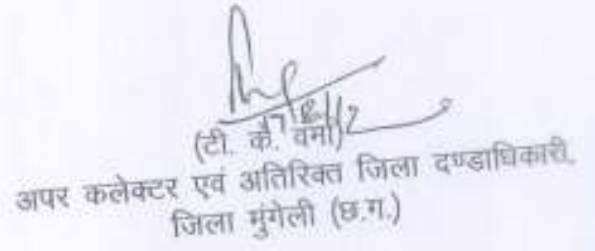 (टी. के. वर्मा)
अपर कलेक्टर एवं अतिरिक्त जिला दण्डाधिकारी,
जिला मुंगेली (छ.ग.)